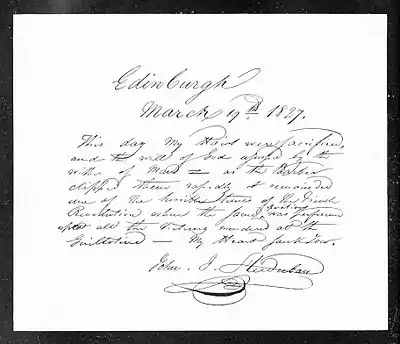 Edinburgh
March 19th 1827.
This day My Hairs were sacrificed,
and the will of God usurped by the
wishes of Man = as the Barber
clipped them rapidly it remainded
me of the horrible times of the French
Revolution when the same was performed
upon all the Victims murdered at the
Guillotine — My Heart sunk low.
John. J. Audubon